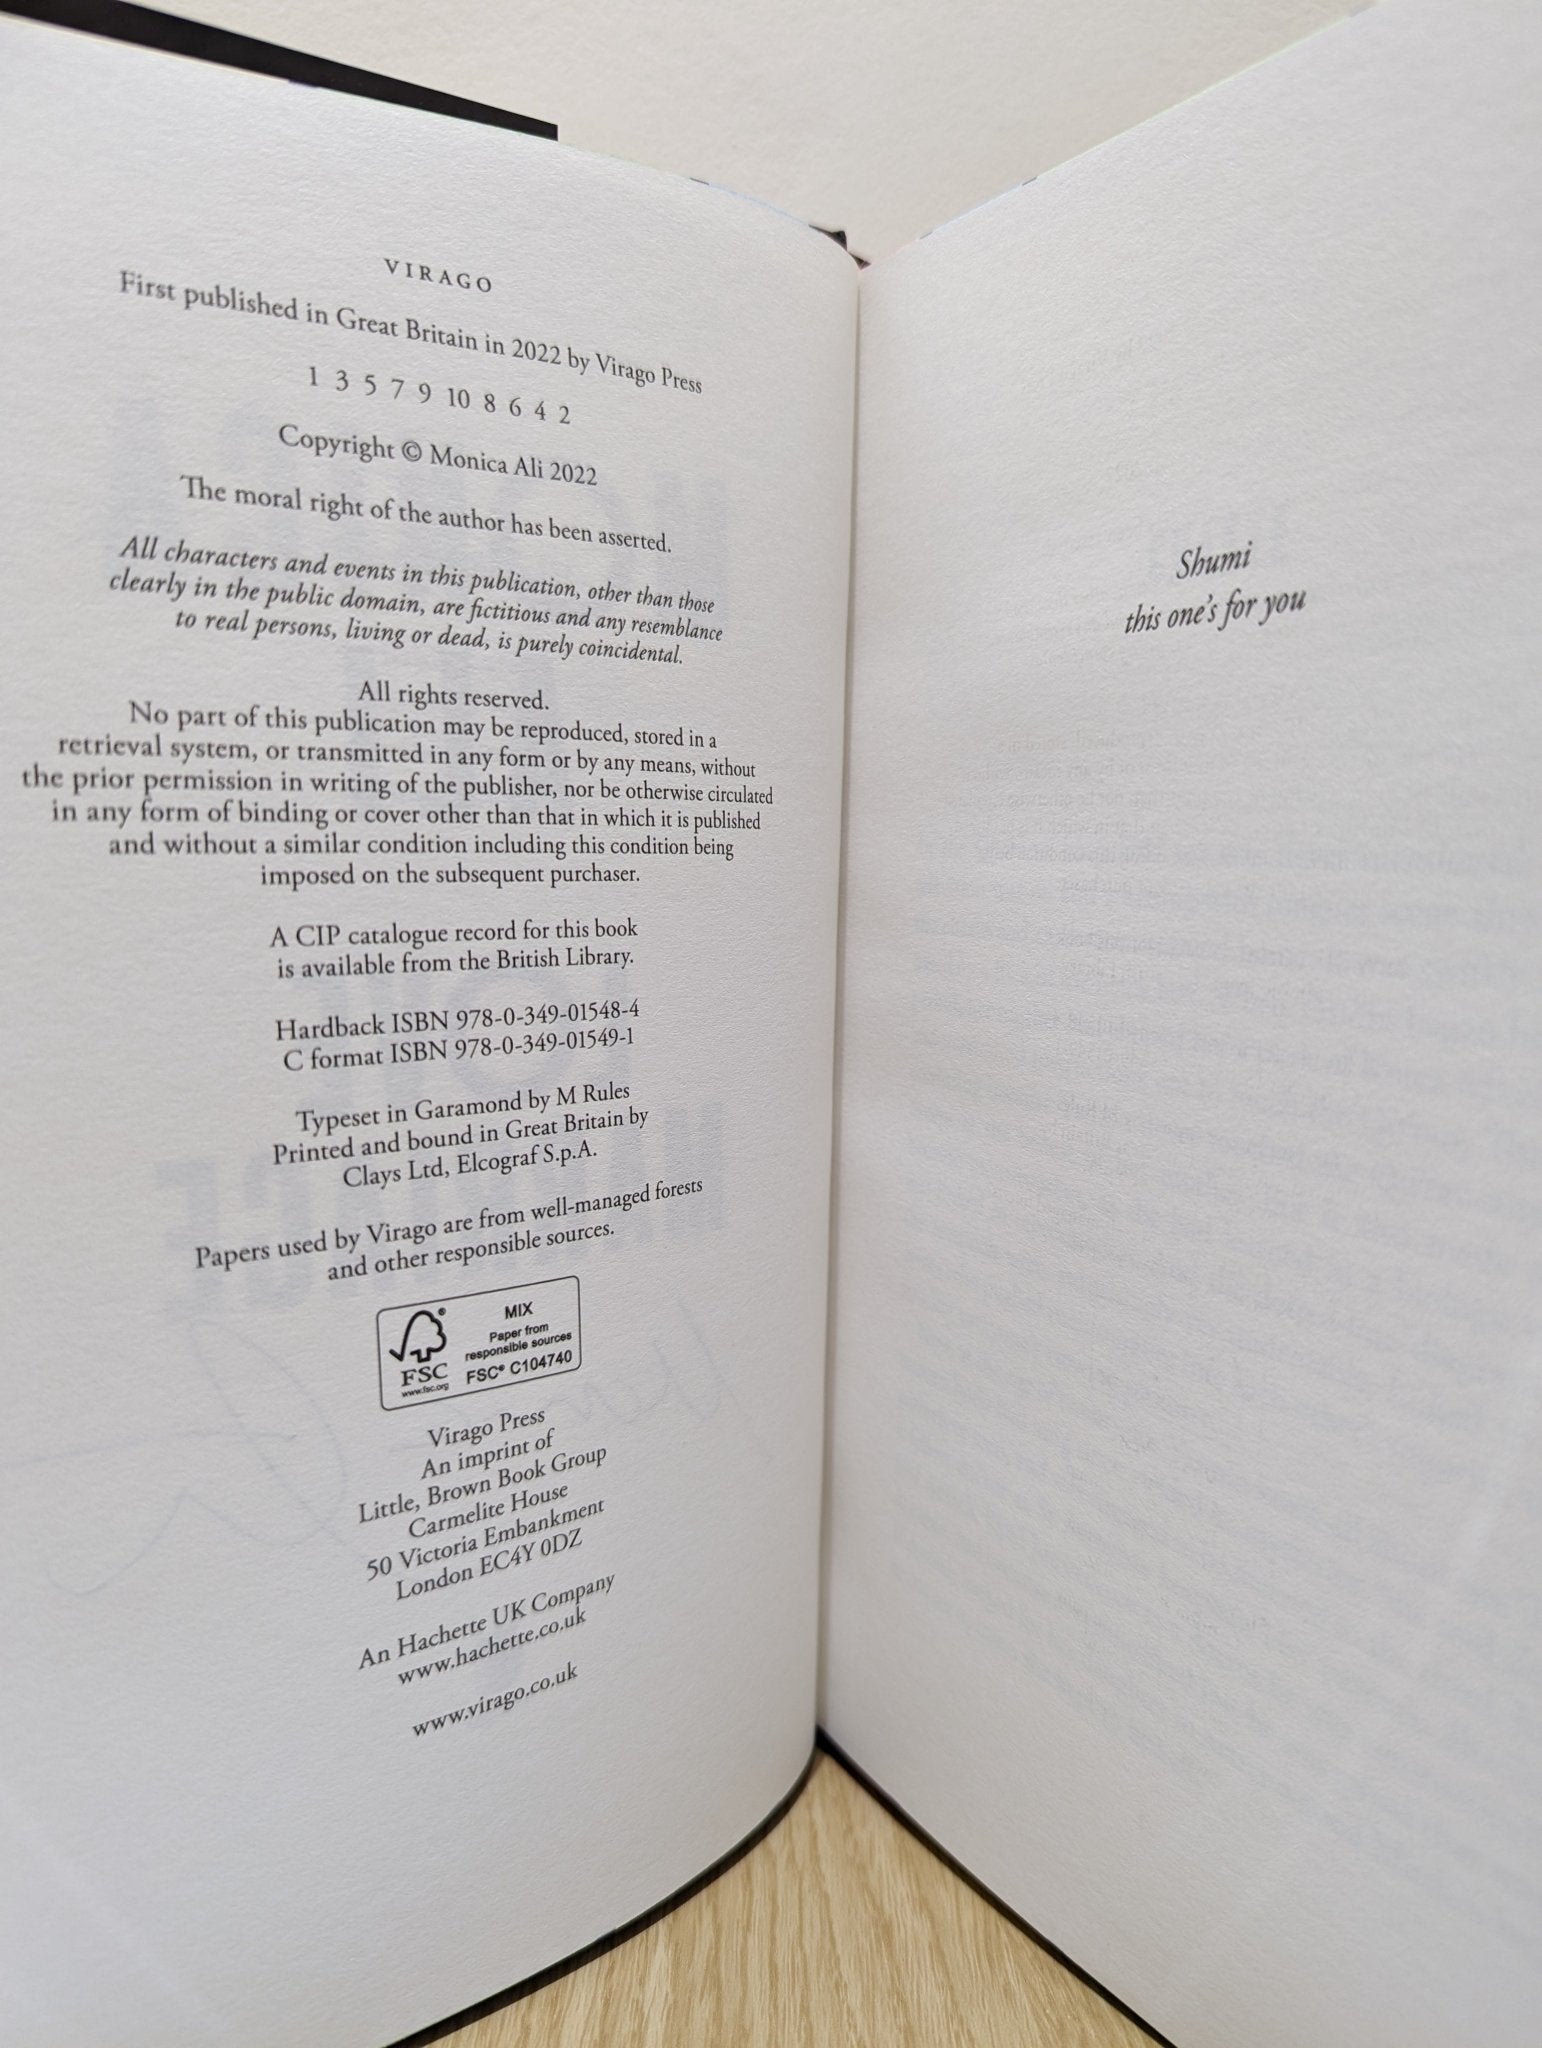 VIRAGO
First published in Great Britain in 2022 by Virago Press
1 3 5 7 9 10 8 6 4 2
Copyright © Monica Ali 2022
The moral right of the author has been asserted.
All characters and events in this publication, other than those
clearly in the public domain, are fictitious and any resemblance
to real persons, living or dead, is purely coincidental.
All rights reserved.
No part of this publication may be reproduced, stored in a
retrieval system, or transmitted in any form or by any means, without
the prior permission in writing of the publisher, nor be otherwise circulated
in any form of binding or cover other than that in which it is published
and without a similar condition including this condition being
imposed on the subsequent purchaser.
A CIP catalogue record for this book
is available from the British Library.
Hardback ISBN 978-0-349-01548-4
C format ISBN 978-0-349-01549-1
Typeset in Garamond by M Rules
Printed and bound in Great Britain by
Clays Ltd, Elcograf S.p.A.
Papers used by Virago are from well-managed forests
and other responsible sources.
MIX
Paper from
responsible sources
FSC® C104740
FSC
www.fsc.org
Virago Press
An imprint of
Little, Brown Book Group
Carmelite House
50 Victoria Embankment
London EC4Y 0DZ
An Hachette UK Company
www.hachette.co.uk
www.virago.co.uk
Shumi
this one's for you